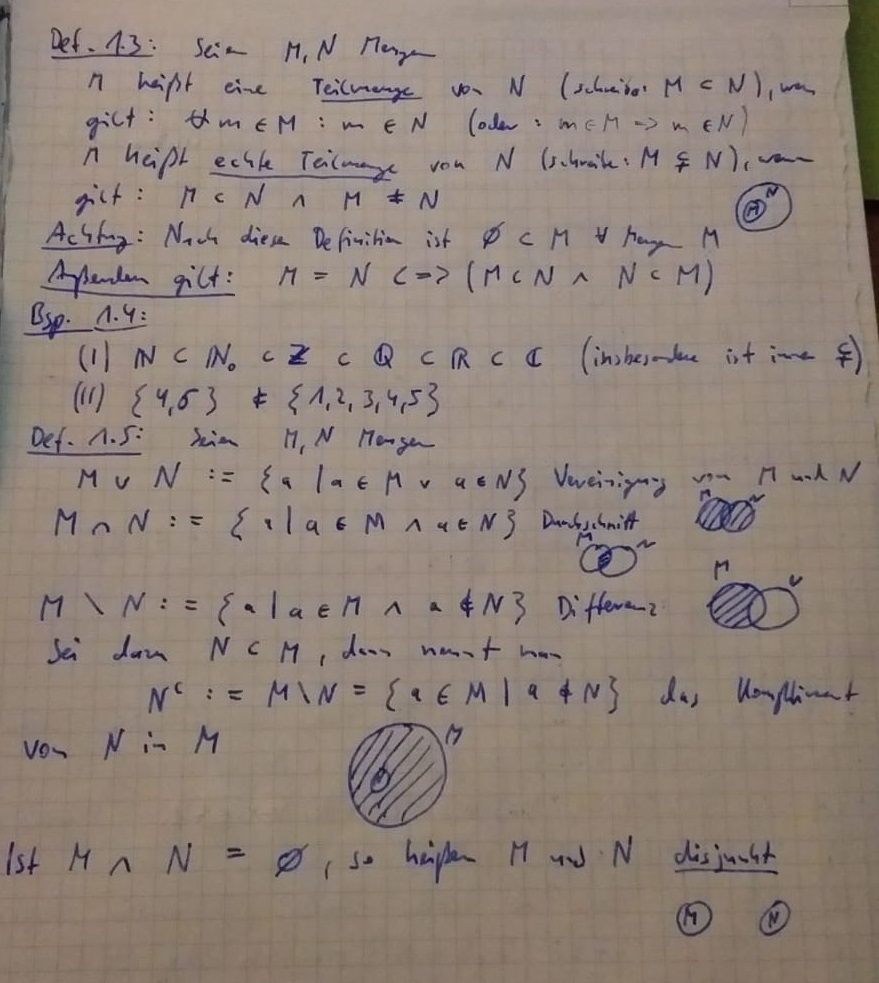 Def. 1.3: Seien M, N Mengen
M heißt eine Teilmenge von N (schreibe: M ⊂ N), wenn
gilt: ∀ m ∈ M : m ∈ N (oder: m ∈ M => m ∈ N)
M heißt echte Teilmenge von N (schreibe: M ⊊ N), wenn
gilt: M ⊂ N ∧ M ≠ N
M N
Achtung: Nach dieser Definition ist ∅ ⊂ M ∀ Mengen M
Außerdem gilt: M = N <=> (M ⊂ N ∧ N ⊂ M)
Bsp. 1.4:
(I) ℕ ⊂ ℕ₀ ⊂ ℤ ⊂ ℚ ⊂ ℝ ⊂ ℂ (insbesondere ist immer ⊊)
(II) {4,6} ⊄ {1,2,3,4,5}
Def. 1.5: Seien M, N Mengen
M ∪ N := {a | a ∈ M ∨ a ∈ N} Vereinigung von M und N
M N
M ∩ N := {a | a ∈ M ∧ a ∈ N} Durchschnitt
M N
M \ N := {a | a ∈ M ∧ a ∉ N} Differenz
M N
Sei dazu N ⊂ M, dann nennt man
Nᶜ := M\N = {a ∈ M | a ∉ N} das Kompliment
von N in M
M N
Ist M ∩ N = ∅, so heißen M und N disjunkt
M N